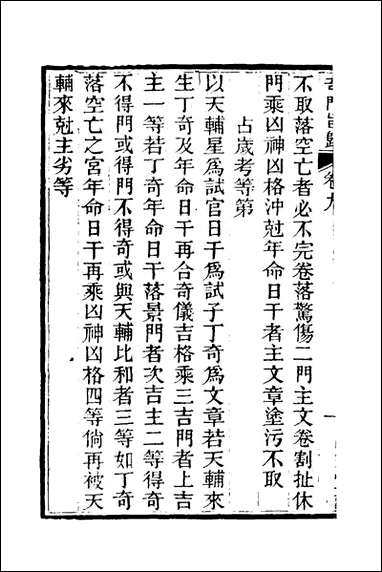 奇門旨歸 卷九 一
不取落空亡者必不完卷落驚傷二門主文卷割扯休
門乘凶神凶格沖尅年命日干者主文章塗污不取
占歲考等第
以天輔星爲試官日干爲試子丁奇爲文章若天輔來
生丁奇及年命日干再合奇儀吉格乘三吉門者上吉
主一等若丁奇年命日干落景門者次吉主二等得奇
不得門或得門不得奇或與天輔比和者三等如丁奇
落空亡之宮年命日干再乘凶神凶格四等倘再被天
輔來尅主劣等